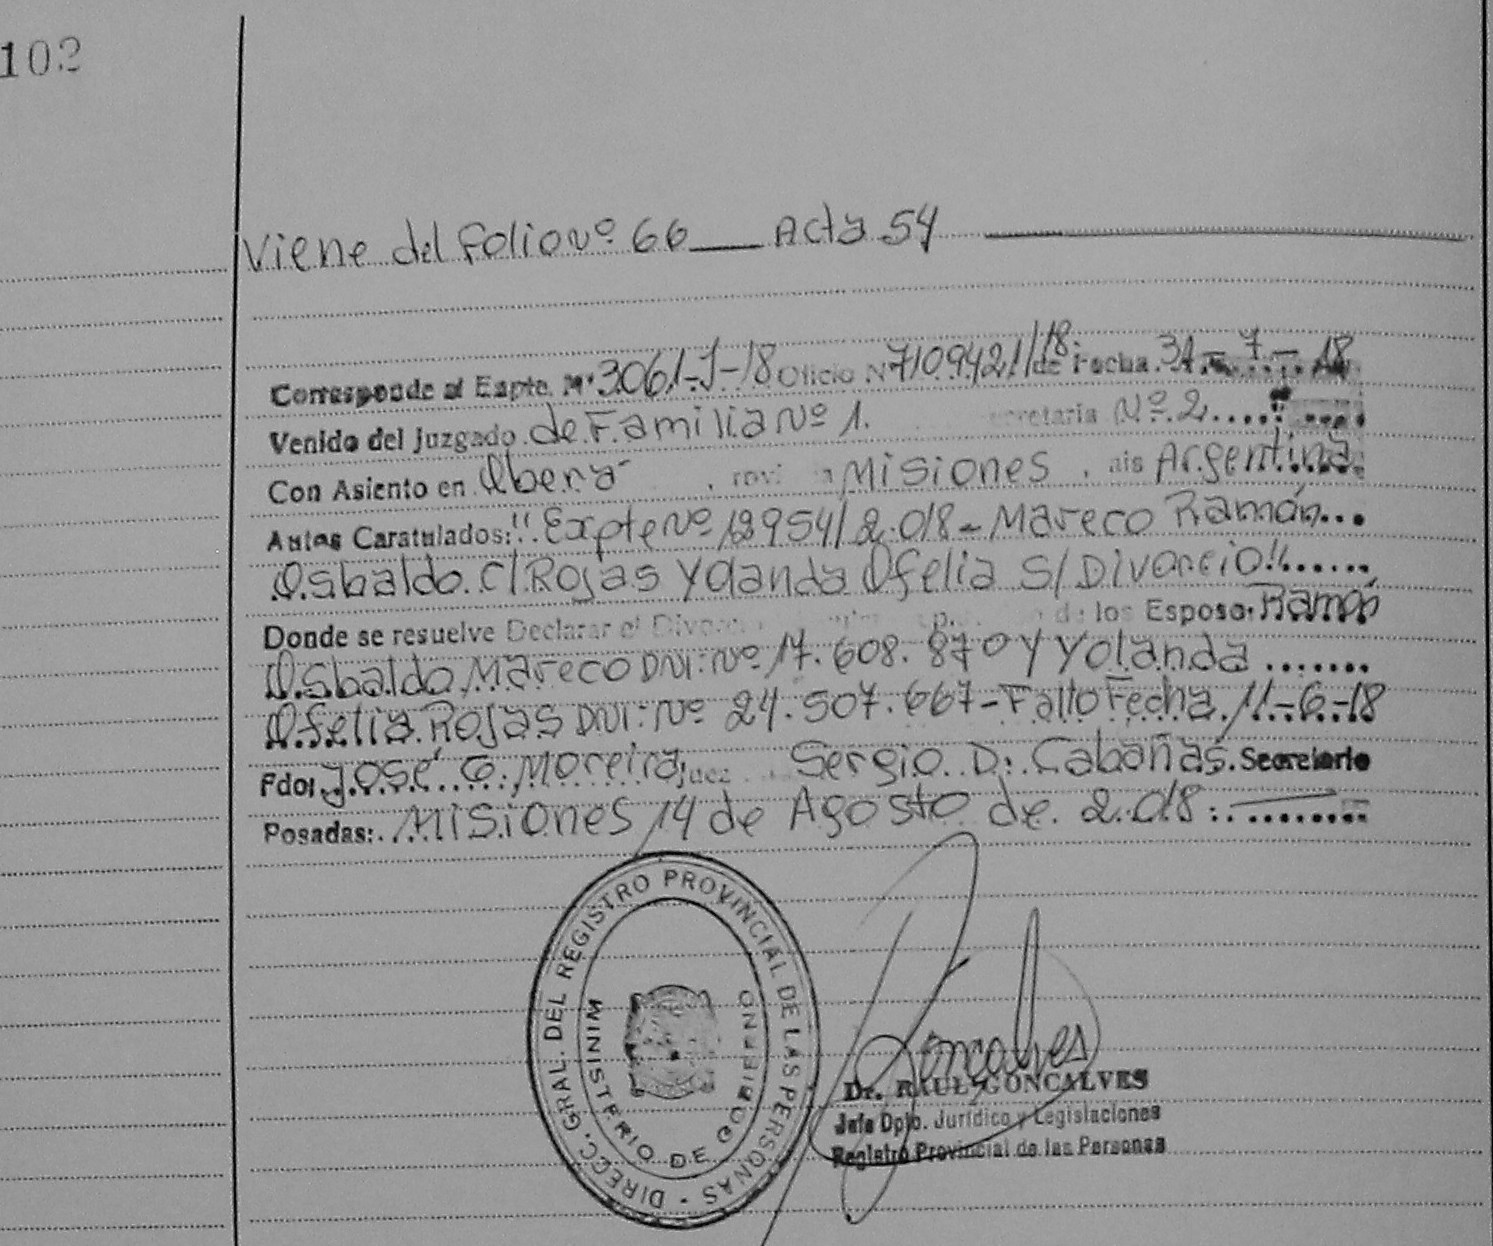 102
Viene del folio Nº 66 ___ Acta 54
Corresponde al Expte. Nº 3061-J-18 Oficio Nº 7109421/18 de Fecha 31-7-18
Venido del Juzgado de Familia Nº 1. Secretaria Nº 2
Con Asiento en Obera Misiones, Pais Argentina
Autos Caratulados: "Expte Nº 12954/2.018 - Mareco Ramón
Osbaldo c/ Rojas Yolanda Ofelia S/ Divorcio"
Donde se resuelve Declarar el Divorcio de los Esposos Ramón
Osbaldo Mareco DNI: Nº 17.608.870 y Yolanda
Ofelia Rojas DNI: Nº 24.507.667 - Fallo Fecha 11-6-18
Fdo: José G. Moreira Juez Sergio D. Cabañas. Secretario
Posadas: Misiones 14 de Agosto de 2.018.
DIRECC. GRAL. DEL REGISTRO PROVINCIAL DE LAS PERSONAS -
MINISTERIO DE GOBIERNO
Goncalves
Dr. RAUL GONCALVES
Jefe Dpto. Jurídico y Legislaciones
Registro Provincial de las Personas